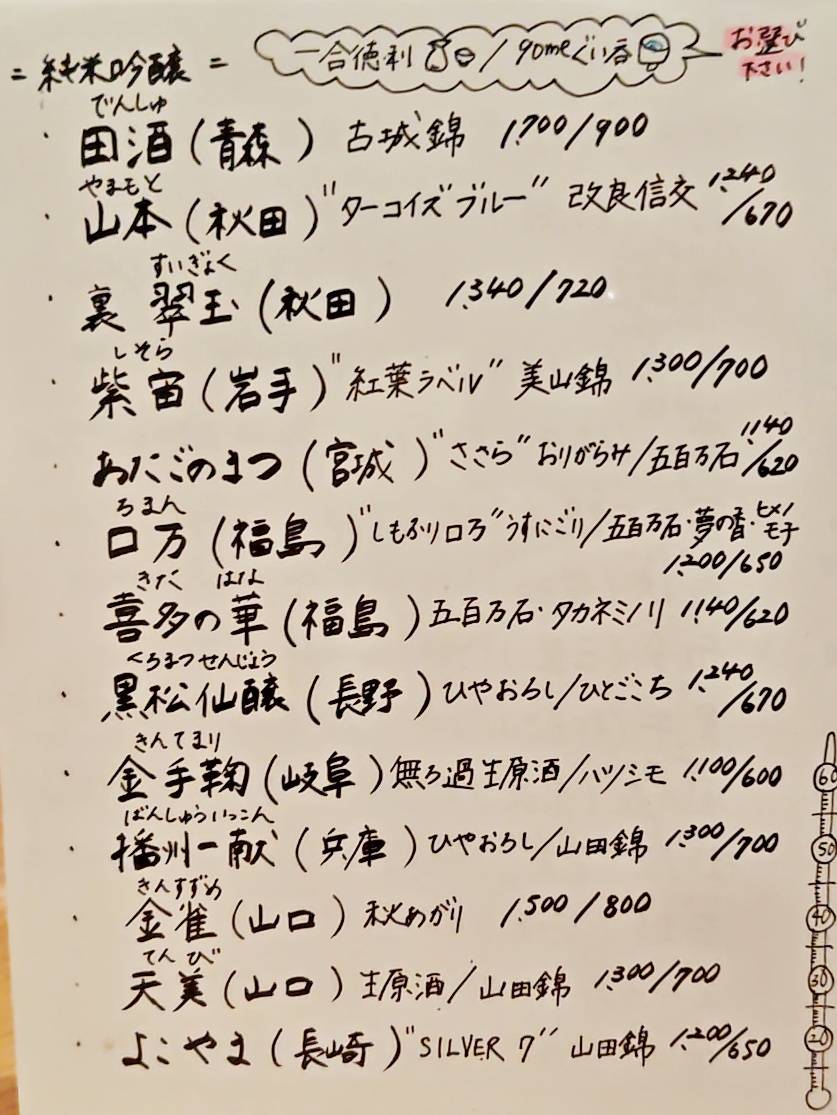 = 純米吟醸 =
一合徳利 / 90mlぐい呑
お選び
下さい!
でんしゅ
・田酒(青森) 古城錦 1,700/900
やまもと
・山本(秋田)"ターコイズブルー" 改良信交 1,240/670
すいぎょく
・裏 翠玉(秋田) 1,340/720
しそら
・紫宙(岩手)"紅葉ラベル" 美山錦 1,300/700
あたごのまつ(宮城)"ささら"おりがらみ/五百万石 1,140/620
ろまん
・口万(福島)"しもふり口万"うすにごり/五百万石・夢の香・ヒメノモチ
1,200/650
きた はな
・喜多の華(福島)五百万石・タカネミノリ 1,140/620
くろまつせんじょう
・黒松仙醸(長野)ひやおろし/ひとごこち 1,240/670
きんてまり
・金手鞠(岐阜)無ろ過生原酒/ハツシモ 1,100/600
ばんしゅういっこん
・播州一献(兵庫)ひやおろし/山田錦 1,300/700
きんすずめ
・金雀(山口)秋あがり 1,500/800
てんび
・天美(山口)生原酒/山田錦 1,300/700
・よこやま(長崎)"SILVER 7" 山田錦 1,200/650
60
50
40
30
20